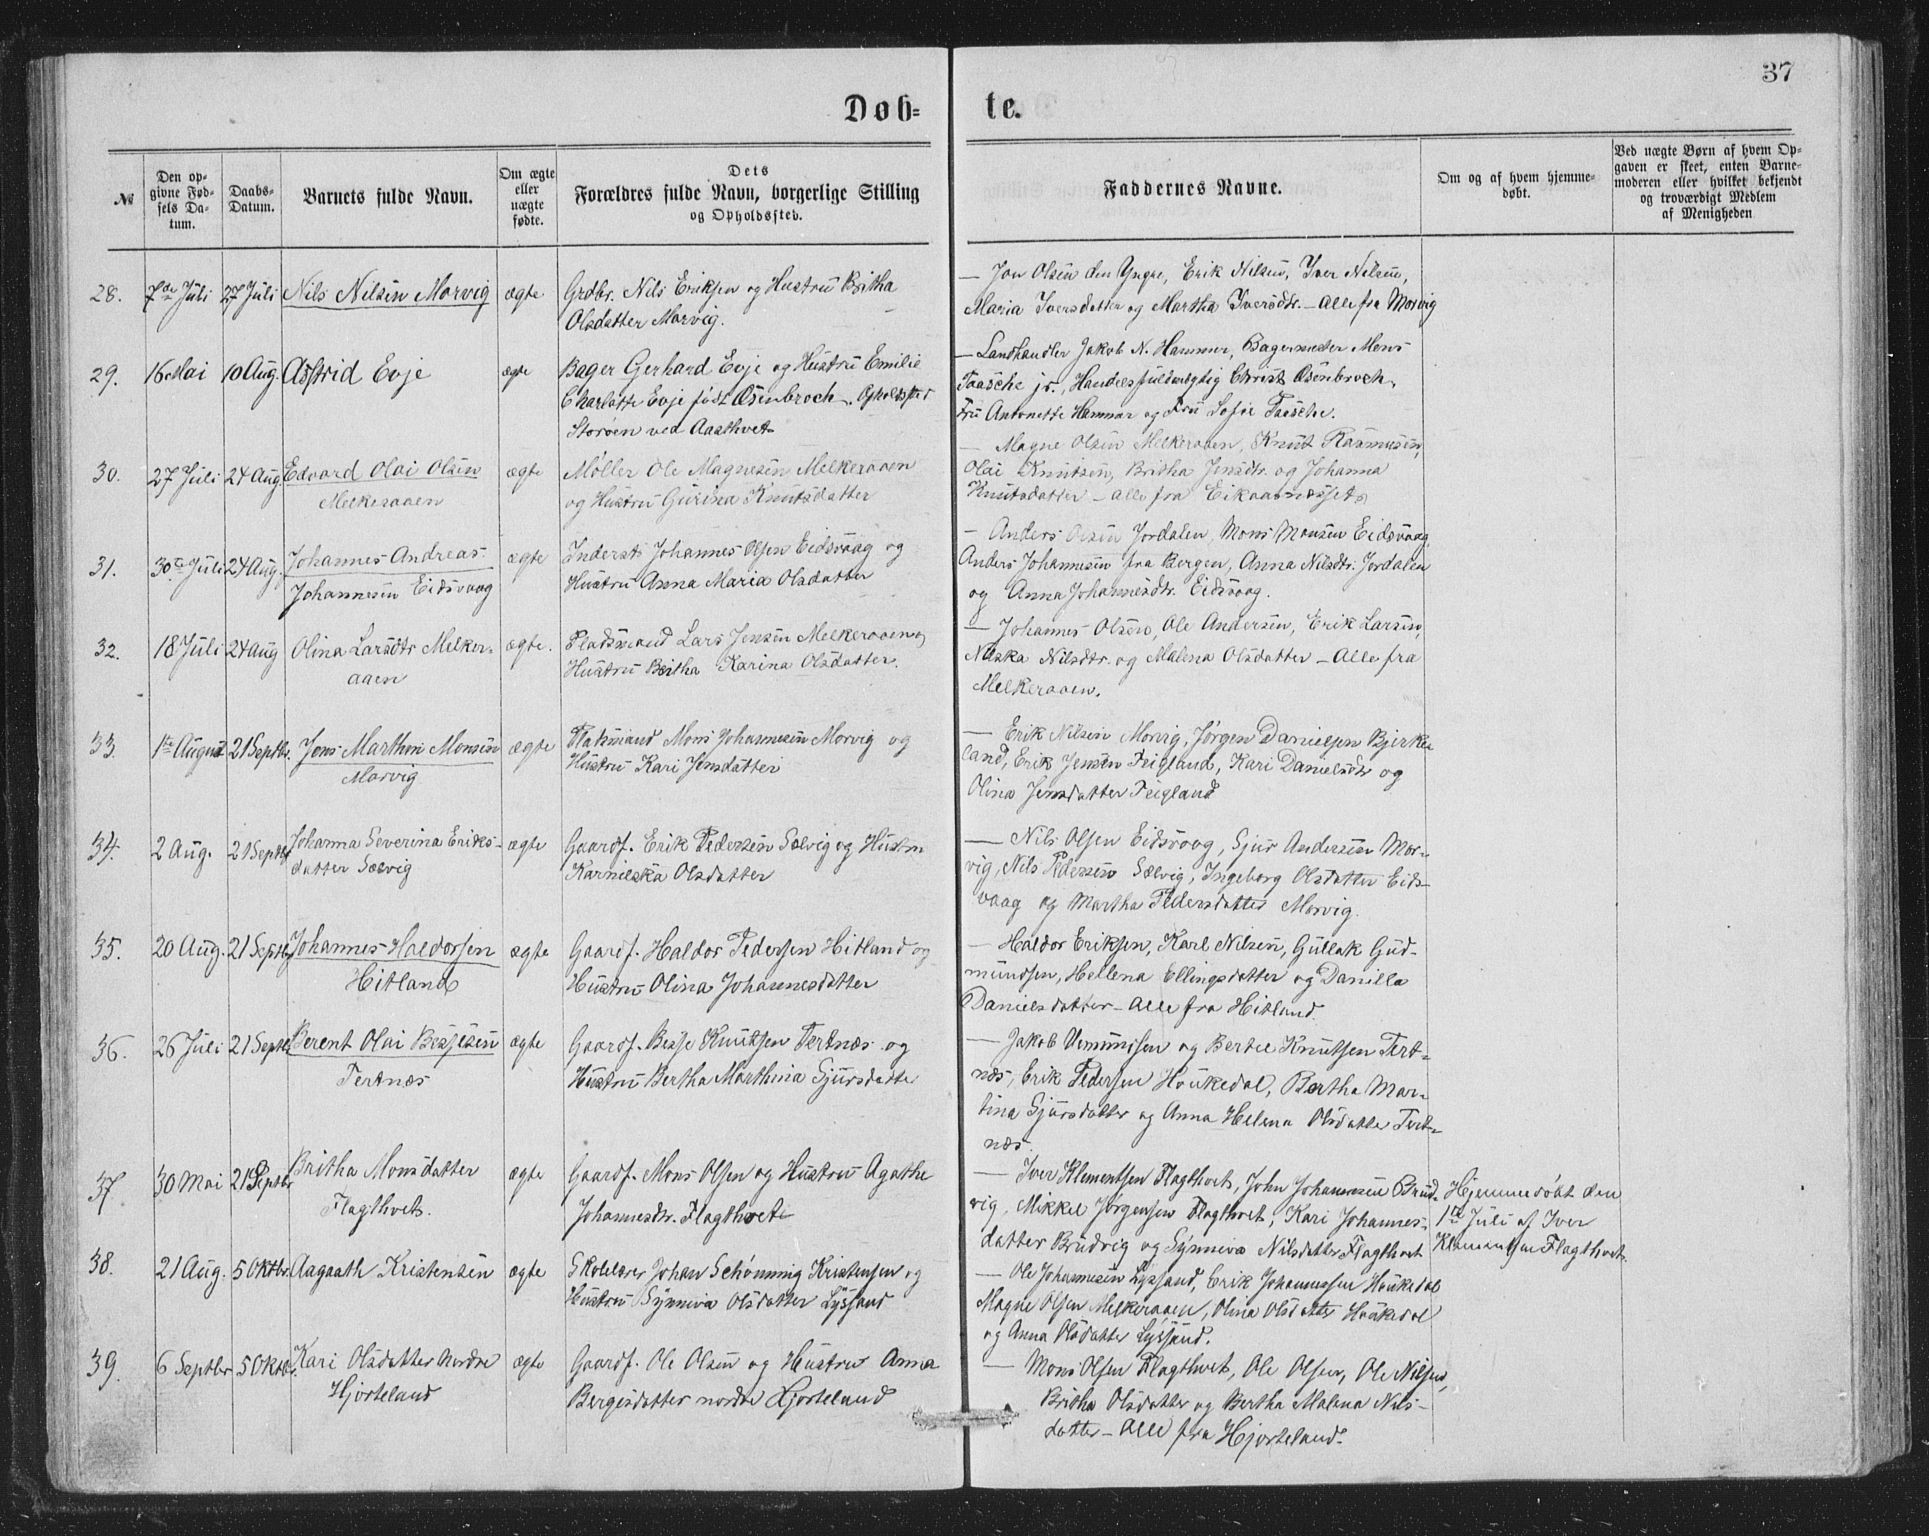 37
Døb-
te.
№
Den op-
givne Fød-
sels Da-
tum.
Daabs-
Datum.
Barnets fulde Navn.
Om ægte
eller
uægte
fødte.
Dets
Forældres fulde Navn, borgerlige Stilling
og Opholdssted.
Faddernes Navne.
Om og af hvem hjemme-
døbt.
Ved uægte Børn af hvem Op-
gaven er skeet, enten Barne-
moderen eller hvilket bekjendt
og troværdigt Medlem
af Menigheden
28.
7de Juli
27 Juli
Nils Nilsen Morvig
ægte
Grdbr. Nils Eriksen og Hustru Britha
Olsdatter Morvig.
— Jon Olsen den Yngre, Erik Nilsen, Iver Nilsen,
Maria Iversdatter og Martha Iversdtr. — Alle fra Morvig
29.
16 Mai
10 Aug.
Astrid Evje
ægte
Bager Gerhard Evje og Hustru Emilie
Charlotte Evje født Osenbroch. Opholdsted
Storoen ved Aasthvet
— Landhandler Jakob N. Hammer, Bagermester Mons
Taasche jr., Handelsfuldmægtig Christ Osenbroch,
Fru Antonette Hammer og Fru Sofie Taasche.
30.
27 Juli
24 Aug.
Edvard Olai Olsen
Melkeraaen
ægte
Møller Ole Magnesen Melkeraaen
og Hustru Gurina Knutsdatter
— Magne Olsen Melkeraaen, Knut Rasmussen,
Olai Knutsen, Britha Jensdtr. og Johanna
Knutsdatter — alle fra Eikaasnæsset
31.
30te Juli
24 Aug.
Johannes Andreas
Johannesen Eidsvaag
ægte
Inderst Johannes Olsen Eidsvaag og
Hustru Anna Maria Olsdatter
— Anders Olsen Jordalen, Mons Monsen Eidsvaag,
Anders Johannesen fra Bergen, Anna Nilsdtr. Jordalen
og Anna Johannesdtr. Eidsvaag.
32.
18 Juli
24 Aug
Olina Larsdtr Melker-
aaen
ægte.
Pladsmand Lars Jensen Melkeraaen og
Hustru Britha Karina Olsdatter.
— Johannes Olsen, Ole Andersen, Erik Larsen,
Nilska Nilsdtr. og Malena Olsdatter — Alle fra
Melkeraaen.
33.
1te August
21 Septbr.
Jens Marthin Monsen
Morvig
ægte
Platsmand Mons Johannesen Morvig og
Hustru Kari Jensdatter
— Erik Nilsen Morvig, Jørgen Danielsen Bjirke-
land, Erik Jensen Feigland, Kari Danielsdtr og
Olina Jensdatter Feigland
34.
2 Aug.
21 Septbr
Johanna Severina Eriks-
datter Sælvig
ægte
Gaardf. Erik Pedersen Sælvig og Hustru
Karnilska Olsdatter
— Nils Olsen Eidsvaag, Sjur Andersen Mor-
vig, Nils Pedersen Sælvig, Ingeborg Olsdatter Eids-
vaag og Martha Pedersdatter Morvig.
35.
20 Aug.
21 Septbr
Johannes Haldorsen
Hitland
ægte
Gaardf. Haldor Pedersen Hitland og
Hustru Olina Johannesdatter
— Haldor Eriksen, Karl Nilsen, Gullak Gud-
mundsen, Hellena Ellingsdatter og Danilla
Danielsdatter — alle fra Hitland.
36.
26 Juli
21 Septbr
Berent Olai Besjesen
Tertnæs
ægte
Gaardf. Besje Knutsen Tertnæs og
Hustru Bertha Marthina Sjursdatter
— Jakob Vemundsen og Bertel Knutsen Tert-
næs, Erik Pedersen Houkedal, Bertha Mar-
tina Sjursdatter og Anna Helena Olsdatter Tert-
næs.
37
30 Mai
21 Septbr
Britha Monsdatter
Flagthvet.
ægte
Gaardf. Mons Olsen og Hustru Agathe
Johannesdtr. Flagthvet
— Iver Klementsen Flagthvet, John Johannesen Brud-
vig, Mikkel Jørgensen Flagthvet, Kari Johannes-
datter Brudvig og Synneva Nilsdatter Flagthvet
Hjemmedøbt den
1te Juli af Iver
Klementsen Flagthvet.
38.
21 Aug.
5 Oktbr.
Aagaath Kristensen
ægte
Skolelærer Johan Schønning Kristensen og
Hustru Synneva Olsdatter Lyssand
— Ole Johannesen Lyssand, Erik Johannessen Houkedal
Magne Olsen Melkeraaen, Olina Olsdatter Houkedal
og Anna Olsdatter Lyssand.
39.
6 Septbr
5 Oktbr.
Kari Olsdatter nordre
Hjorteland
ægte
Gaardf. Ole Olsen og Hustru Anna
Bergesdatter nordre Hjorteland
— Mons Olsen Flagthvet, Ole Olsen, Ole Nilsen,
Britha Olsdatter og Bertha Malena Nils-
datter — Alle fra Hjorteland.